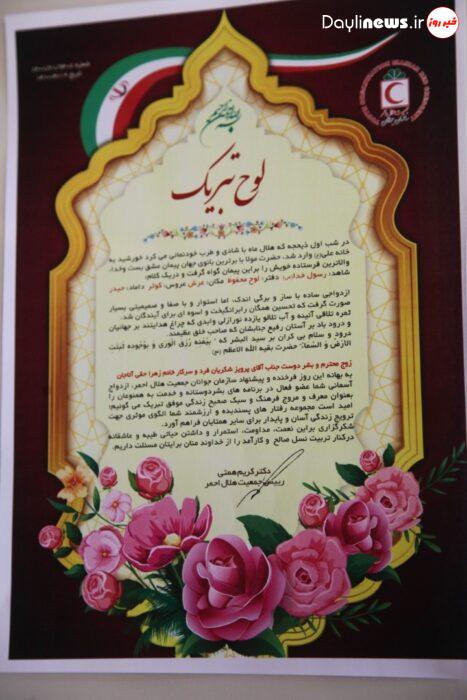 Daylinews.ir
خبر روز
بسم الله الرحمن الرحیم
لوح تبریک
در شب اول ذیحجه که هلال ماه با شادی و طرب خودنمائی می کرد خورشید به
خانه علی(ع) وارد شد، حضرت مولا با برترین بانوی جهان پیمان عشق بست وخدا،
والاترین فرستاده خویش را براین پیمان گواه گرفت و دریک کلام:
شاهد: رسول خدا(ص) دفتر: لوح محفوظ مکان: عرش عروس: کوثر داماد: حیدر
ازدواجی ساده با ساز و برگی اندک، اما استوار و با صفا و صمیمیتی بسیار
صورت گرفت که تحسین همگان رابرانگیخت و اسوه ای برای آیندگان شد.
ثمره تلاقی آئینه و آب تلالو یازده نورازلی وابدی که چراغ هدایتند بر جهانیان
و درود باد بر آستان رفیع جنابشان که صاحب خلق عظیمند.
درود و سلام بی کران بر سید البشر که « بیمنه رزق الوری و بوجوده ثبتت
الارض و السماء» حضرت بقیه الله الاعظم (عج)
زوج محترم و بشر دوست جناب آقای پرویز شکریان فرد و سرکار خانم زهرا حقی آناجان
به بهانه این روز فرخنده و پیشنهاد سازمان جوانان جمعیت هلال احمر، ازدواج
آسمانی شما عضو فعال در برنامه های بشردوستانه و خدمت به همنوعان را
بعنوان معرف و مروج فرهنگ و سبک صحیح زندگی موفق تبریک می گوئیم؛
امید است مجموعه رفتار های پسندیده و ارزشمند شما الگوی موثری جهت
ترویج زندگی آسان و پایدار برای سایر همتایان فراهم آورد.
شکرگزاری براین نعمت، مداومت، استمرار و داشتن حیاتی طیبه و عاشقانه
درکنار تربیت نسل صالح و کارآمد را از خداوند منان برایتان مسئلت داریم.
دکتر کریم همتی
رییس جمعیت هلال احمر